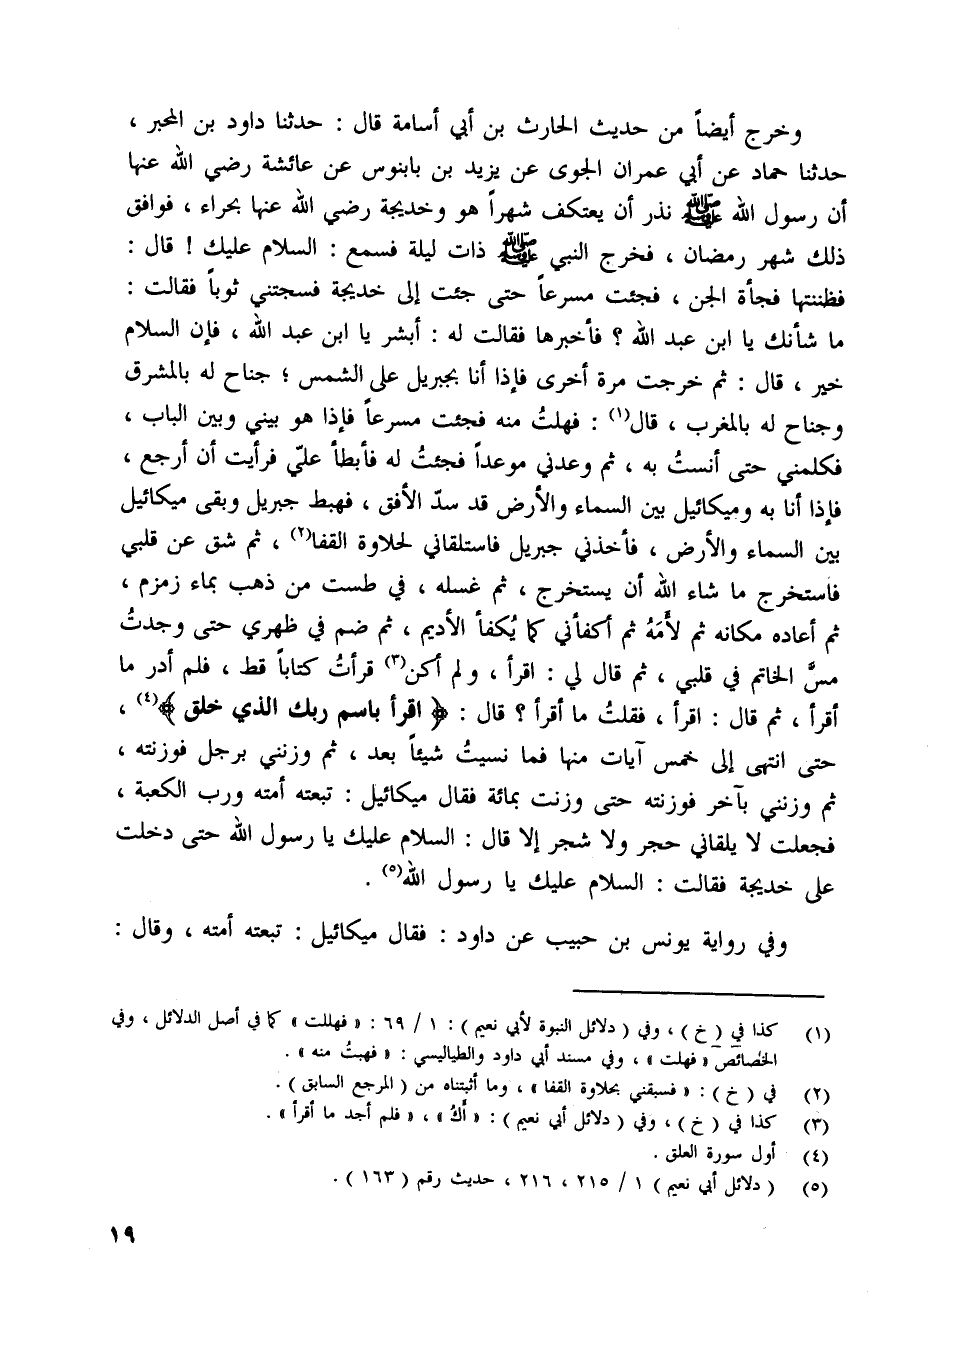 وخرج أيضاً من حديث الحارث بن أبي أسامة قال : حدثنا داود بن المحبر ،
حدثنا حماد عن أبي عمران الجوى عن يزيد بن بابنوس عن عائشة رضي الله عنها
أن رسول الله ﷺ نذر أن يعتكف شهراً هو وخديجة رضي الله عنها بحراء ، فوافق
ذلك شهر رمضان ، فخرج النبي ﷺ ذات ليلة فسمع : السلام عليك ! قال :
فظننتها فجأة الجن ، فجئت مسرعاً حتى جئت إلى خديجة فسجتني ثوباً فقالت :
ما شأنك يا ابن عبد الله ؟ فأخبرها فقالت له : أبشر يا ابن عبد الله ، فإن السلام
خير ، قال : ثم خرجت مرة أخرى فإذا أنا بجبريل على الشمس ؛ جناح له بالمشرق
وجناح له بالمغرب ، قال(١) : فهلتُ منه فجئت مسرعاً فإذا هو بيني وبين الباب ،
فكلمني حتى أنستُ به ، ثم وعدني موعداً فجئتُ له فأبطأ عليّ فرأيت أن أرجع ،
فإذا أنا به وميكائيل بين السماء والأرض قد سدّ الأفق ، فهبط جبريل وبقى ميكائيل
بين السماء والأرض ، فأخذني جبريل فاستلقاني لحلاوة القفا(٢) ، ثم شق عن قلبي
فاستخرج ما شاء الله أن يستخرج ، ثم غسله ، في طست من ذهب بماء زمزم ،
ثم أعاده مكانه ثم لأَمَهُ ثم أكفأني كما يُكفأ الأديم ، ثم ضم في ظهري حتى وجدتُ
مسَّ الخاتم في قلبي ، ثم قال لي : اقرأ ، ولم أكن(٣) قرأتُ كتاباً قط ، فلم أدر ما
أقرأ ، ثم قال : اقرأ ، فقلتُ ما أقرأ ؟ قال : ﴿ اقرأ باسم ربك الذي خلق ﴾(٤) ،
حتى انتهى إلى خمس آيات منها فما نسيتُ شيئاً بعد ، ثم وزنني برجل فوزنته ،
ثم وزنني بآخر فوزنته حتى وزنت بمائة فقال ميكائيل : تبعته أمته ورب الكعبة ،
فجعلت لا يلقاني حجر ولا شجر إلا قال : السلام عليك يا رسول الله حتى دخلت
على خديجة فقالت : السلام عليك يا رسول الله(٥) .
وفي رواية يونس بن حبيب عن داود : فقال ميكائيل : تبعته أمته ، وقال :
(١) كذا في ( خ ) ، وفي ( دلائل النبوة لأبي نعيم ) : ١ / ٦٩ : « فهللت » كما في أصل الدلائل ، وفي
الخصائص « فهلت » ، وفي مسند أبي داود والطيالسي : « فهبتُ منه » .
(٢) في ( خ ) : « فسبقني بحلاوة القفا » ، وما أثبتناه من ( المرجع السابق ) .
(٣) كذا في ( خ ) ، وفي ( دلائل أبي نعيم ) : « أكُ » ، « فلم أجد ما أقرأ » .
(٤) أول سورة العلق .
(٥) ( دلائل أبي نعيم ) ١ / ٢١٥ ، ٢١٦ ، حديث رقم ( ١٦٣ ) .
١٩